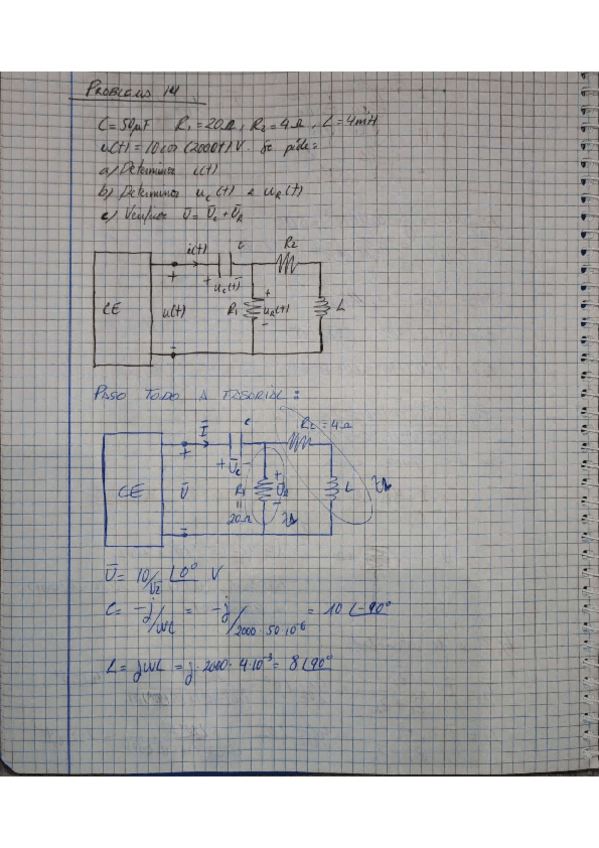 PROBLEMA 14
C = 50μF R₁ = 20Ω, R₂ = 4Ω, L = 4mH
u(t) = 10 cos (2000t) V. Se pide:
a) Determinar i(t)
b) Determinar u_c(t) e u_R(t)
c) Verificar Ū = Ū_c + Ū_R
i(t) C R₂
+ + u_c(t) -
CE u(t) R₁ + u_R(t) - L
-
PASO TODO A FASORIAL:
Ī C R₂ = 4Ω
+ + Ū_c -
CE Ū R₁ = 20Ω + Ū_R - L
-
Ū = 10/√2 ∠0° V
C = -j/ωC = -j/2000·50·10⁻⁶ = 10 ∠-90°
L = jωL = j·2000·4·10⁻³ = 8 ∠90°